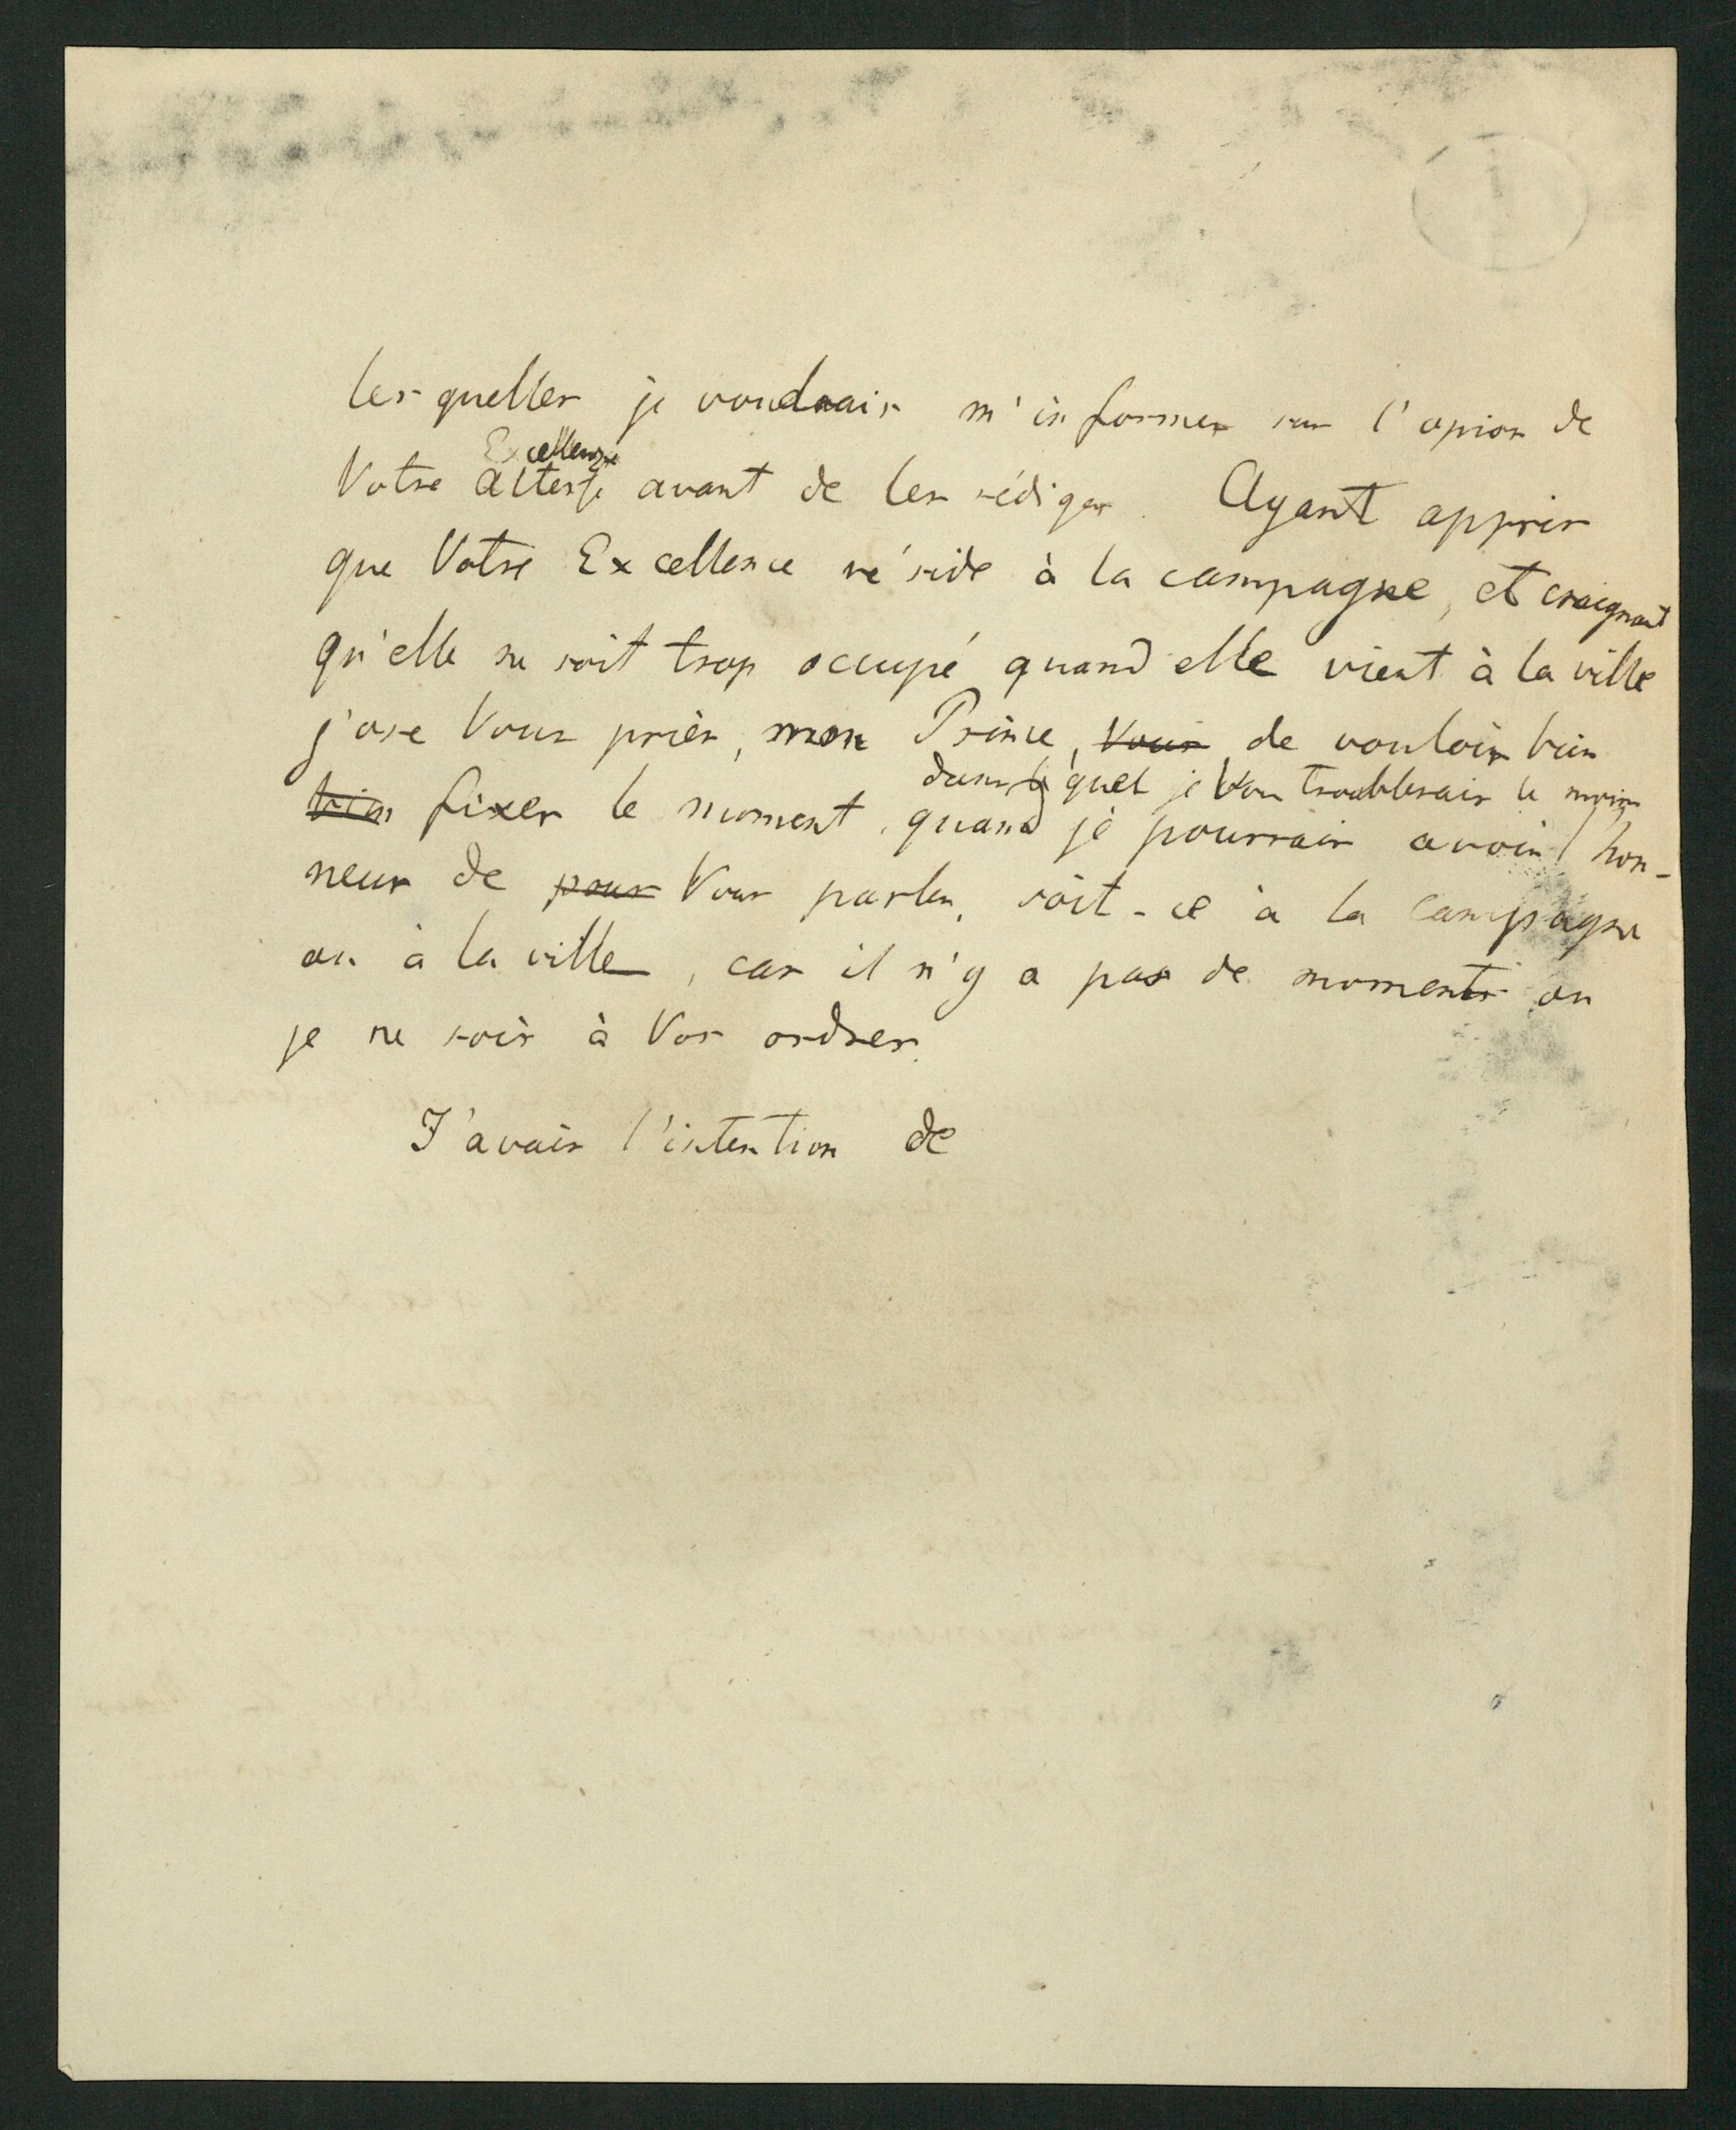 lesquelles je voudrais m'informer sur l'opion de
Excellenze
Votre Altesse avant de les rédiger. Ayant appris
que Votre Excellence réside à la campagne, et craignant
qu'elle ne soit trop occupé quand elle vient à la ville
j'ose Vous prier, mon Prince, Vous de vouloir bien
dans lequel je Vous troublerais le moins
bien fixer le moment, quand je pourrais avoir l'hon-
neur de pour Vous parler, soit-ce à la campagne
ou à la ville, car il n'y a pas de moments ou
je ne sois à Vos ordres.
J'avais l'intention de